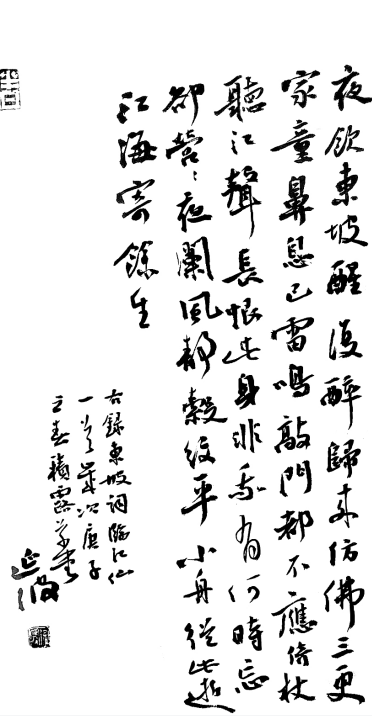 夜飲東坡醒復醉歸來仿佛三更
家童鼻息已雷鳴敲門都不應倚杖
聽江聲長恨此身非我有何時忘
卻營々夜闌風靜縠紋平小舟從此逝
江海寄餘生
右錄東坡詞臨江仙
一首歲次庚子
之春積露